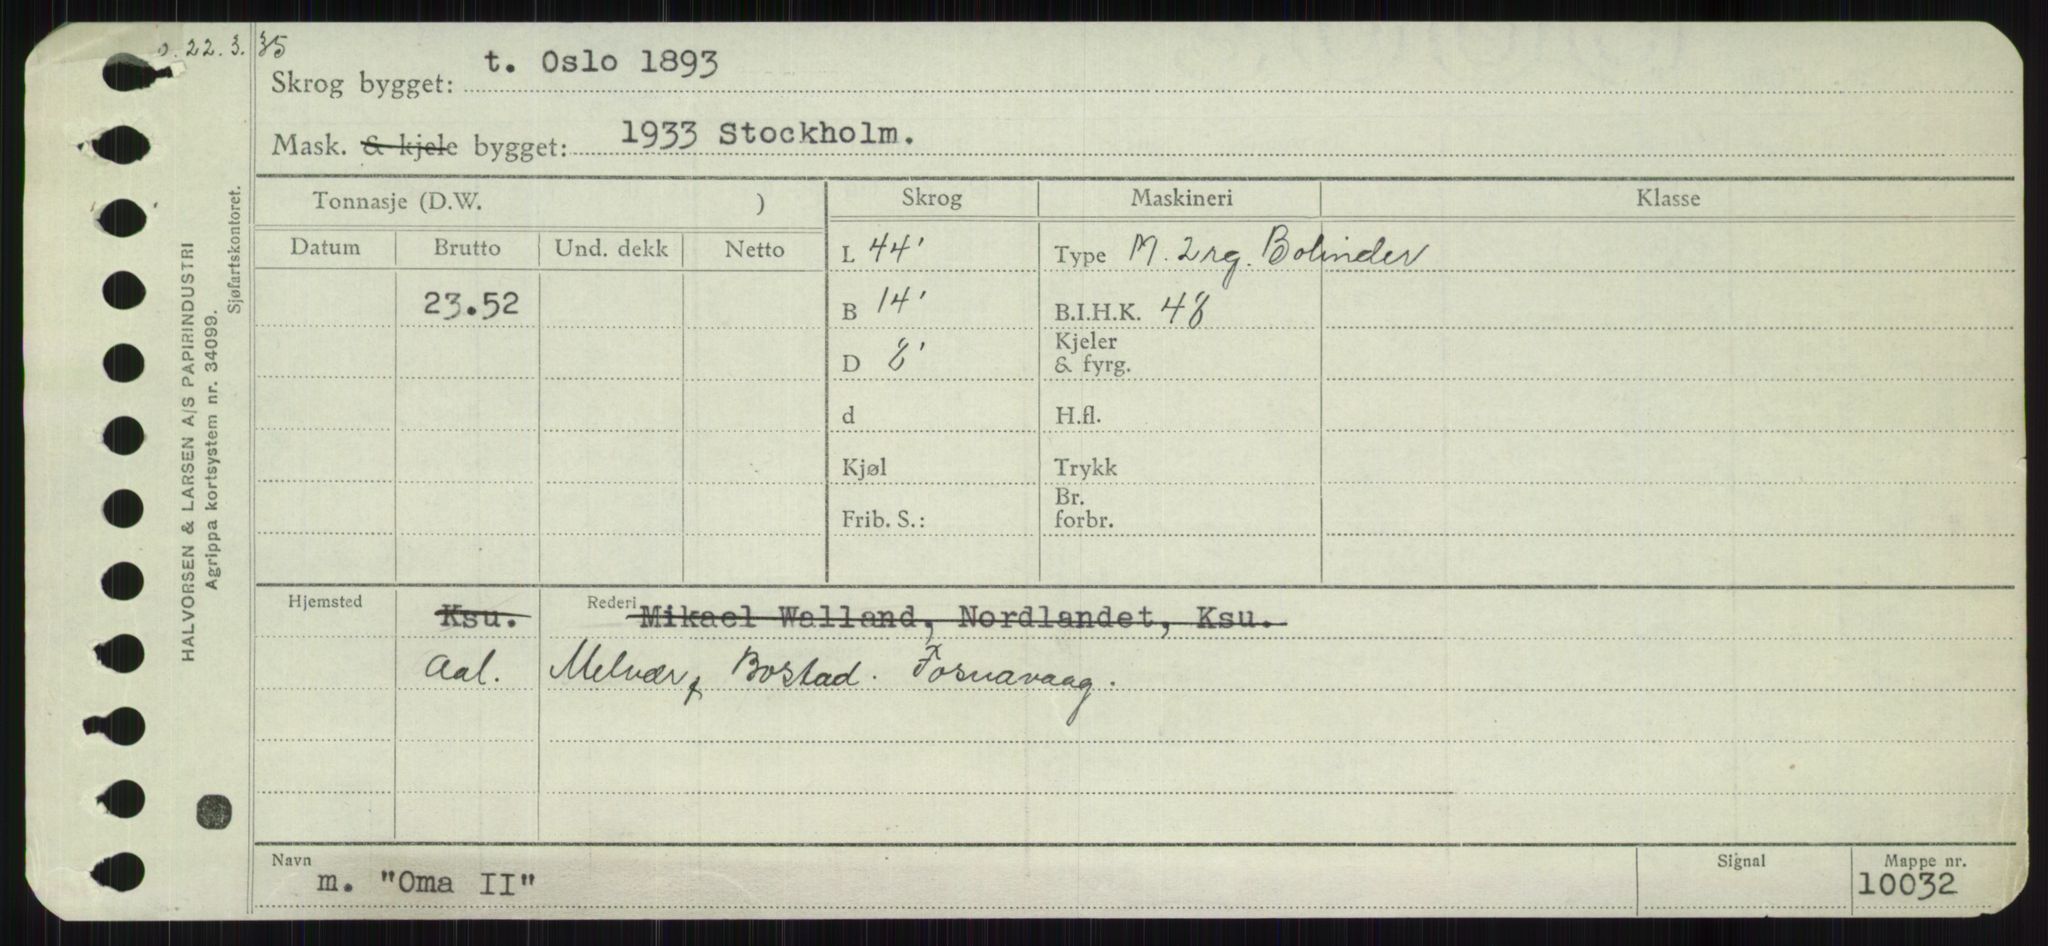 o. 22.3.35
Skrog bygget: t. Oslo 1893
Mask. & kjele bygget: 1933 Stockholm.
Tonnasje (D.W. ) Skrog Maskineri Klasse
Datum Brutto Und. dekk Netto
L 44' Type M. 2 rg. Bolinder
23.52 B 14' B.I.H.K. 48
D 8' Kjeler & fyrg.
d H.fl.
Kjøl Trykk
Frib. S.: Br. forbr.
Hjemsted Ksu. Rederi Mikael Walland, Nordlandet, Ksu.
Aal. Melvær & Bostad. Fosnavaag.
Navn m. "Oma II" Signal Mappe nr. 10032
HALVORSEN & LARSEN A/S PAPIRINDUSTRI
Agrippa kortsystem nr. 34099.
Sjøfartskontoret.